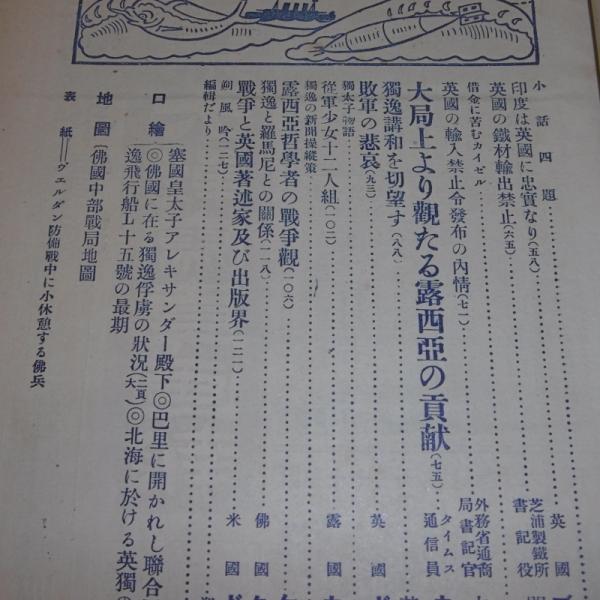 小話四題
印度は英國に忠實なり(五八) 英國
英國の鐵材輸出禁止(六五) 芝浦製鐵所書記役
借金に苦むカイゼル
英國の輸入禁止令發布の內情(七一) 外務省通商局書記官
大局上より觀たる露西亞の貢獻(七五) タイムス通信員
獨逸講和を切望す(八八)
敗軍の悲哀(九三) 英國
獨太子物語
從軍少女十二人組(一〇二) 露國
獨逸の新聞操縱策
露西亞哲學者の戰爭觀(一〇六)
獨逸と羅馬尼との關係(一一八) 佛國
戰爭と英國著述家及び出版界(一二一) 米國
朔風吟(一二七)
編輯だより
口繪 塞國皇太子アレキサンダー殿下◎巴里に開かれし聯合
◎佛國に在る獨逸俘虜の狀況(二頁大)◎北海に於ける英獨
逸飛行船L十五號の最期
地圖〔佛國中部戰局地圖
表紙──ヴェルダン防備戰中に小休憩する佛兵